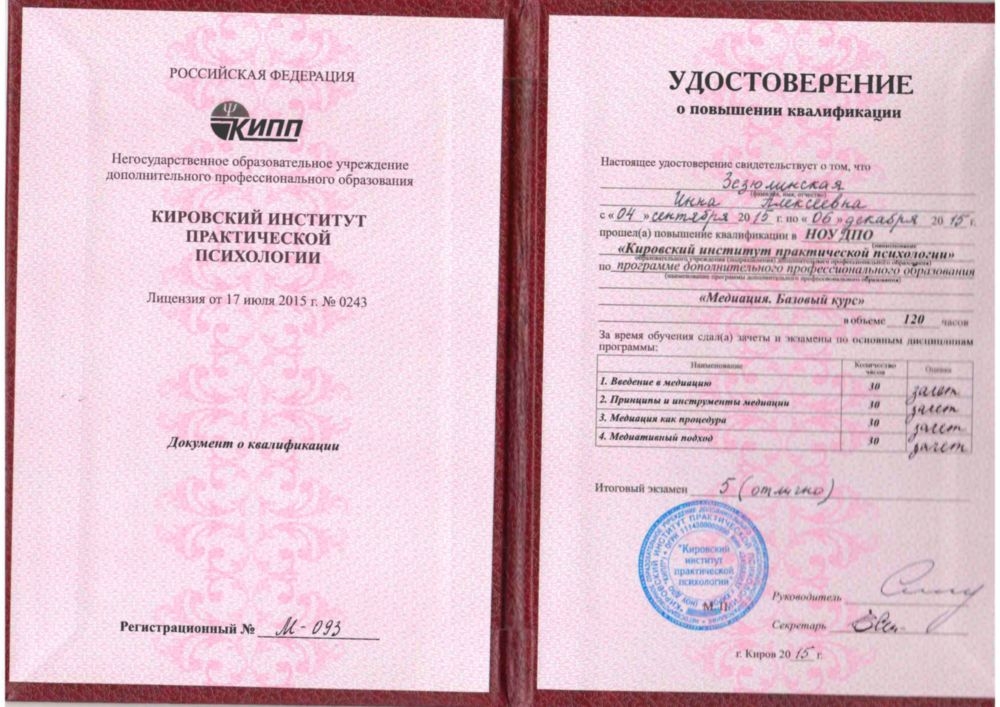 РОССИЙСКАЯ ФЕДЕРАЦИЯ
КИПП
Негосударственное образовательное учреждение
дополнительного профессионального образования
КИРОВСКИЙ ИНСТИТУТ
ПРАКТИЧЕСКОЙ
ПСИХОЛОГИИ
Лицензия от 17 июля 2015 г. № 0243
Документ о квалификации
Регистрационный № М-093
УДОСТОВЕРЕНИЕ
о повышении квалификации
Настоящее удостоверение свидетельствует о том, что
Зезюлинская
(фамилия, имя, отчество)
Инна Алексеевна
с «04» сентября 2015 г. по «06» декабря 2015 г.
прошел(а) повышение квалификации в НОУ ДПО
(наименование
«Кировский институт практической психологии»
образовательного учреждения (подразделения) дополнительного профессионального образования)
по программе дополнительного профессионального образования
(наименование программы дополнительного профессионального образования)
«Медиация. Базовый курс»
в объеме 120 часов
За время обучения сдал(а) зачеты и экзамены по основным дисциплинам
программы:
Наименование Количество часов Оценка
1. Введение в медиацию 30 зачет
2. Принципы и инструменты медиации 30 зачет
3. Медиация как процедура 30 зачет
4. Медиативный подход 30 зачет
Итоговый экзамен 5 (отлично)
"Кировский
институт
практической
психологии"
М.П.
Руководитель
Секретарь
г. Киров 2015 г.